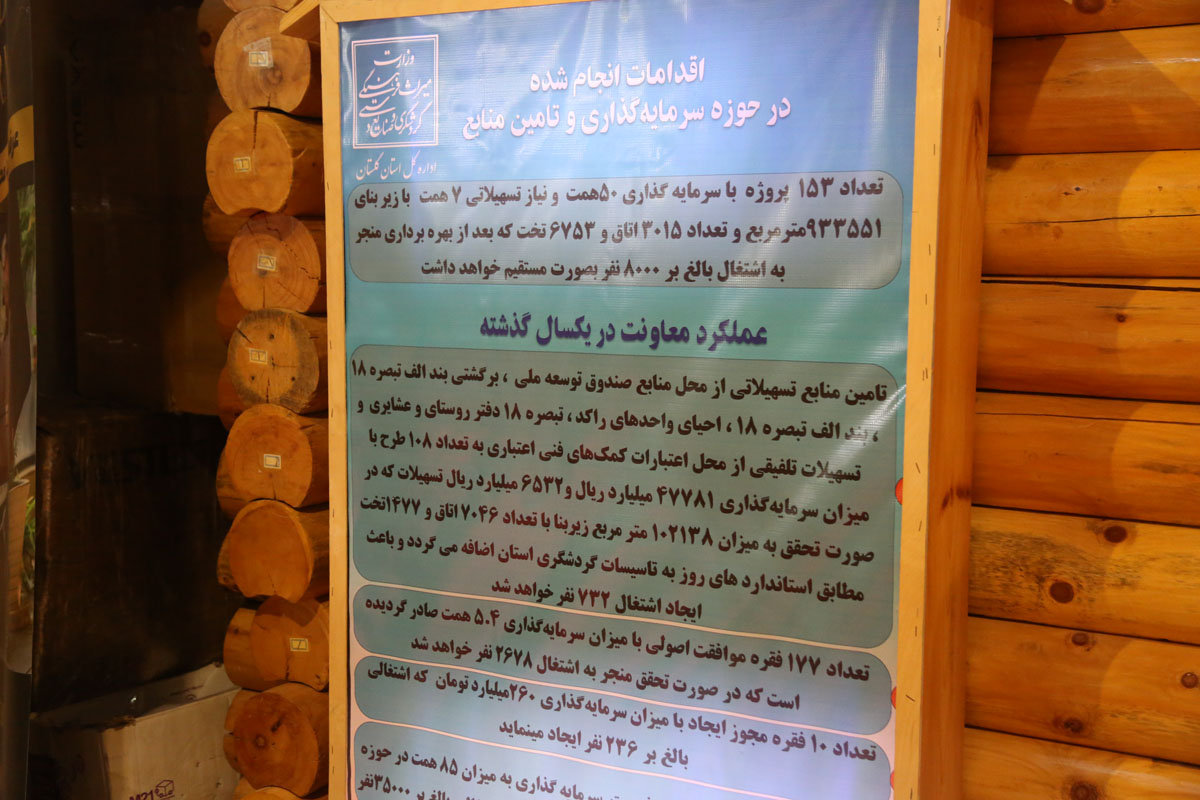 وزارت
میراث فرهنگی
گردشگری و صنایع دستی
اداره کل استان گلستان
اقدامات انجام شده
در حوزه سرمایه‌گذاری و تامین منابع
تعداد ۱۵۳ پروژه با سرمایه گذاری ۵۰همت و نیاز تسهیلاتی ۷ همت با زیر بنای
۹۳۳۵۵۱مترمربع و تعداد ۳۰۱۵ اتاق و ۶۷۵۳ تخت که بعد از بهره برداری منجر
به اشتغال بالغ بر ۸۰۰۰ نفر بصورت مستقیم خواهد داشت
عملکرد معاونت در یکسال گذشته
تامین منابع تسهیلاتی از محل منابع صندوق توسعه ملی ، برگشتی بند الف تبصره ۱۸
، بند الف تبصره ۱۸ ، احیای واحدهای راکد ، تبصره ۱۸ دفتر روستای و عشایری و
تسهیلات تلفیقی از محل اعتبارات کمک‌های فنی اعتباری به تعداد ۱۰۸ طرح با
میزان سرمایه‌گذاری ۴۷۷۸۱ میلیارد ریال و۶۵۳۲ میلیارد ریال تسهیلات که در
صورت تحقق به میزان ۱۰۲۱۳۸ متر مربع زیربنا با تعداد ۷۰۴۶ اتاق و ۱۴۷۷تخت
مطابق استاندارد های روز به تاسیسات گردشگری استان اضافه می گردد و باعث
ایجاد اشتغال ۷۳۲ نفر خواهد شد
تعداد ۱۷۷ فقره موافقت اصولی با میزان سرمایه‌گذاری ۵.۴ همت صادر گردیده
است که در صورت تحقق منجر به اشتغال ۲۶۷۸ نفر خواهد شد
تعداد ۱۰ فقره مجوز ایجاد با میزان سرمایه‌گذاری ۲۶۰میلیارد تومان که اشتغالی
بالغ بر ۲۳۶ نفر ایجاد مینماید
سرمایه گذاری به میزان ۸۵ همت در حوزه
بالغ بر ۳۵۰۰۰نفر